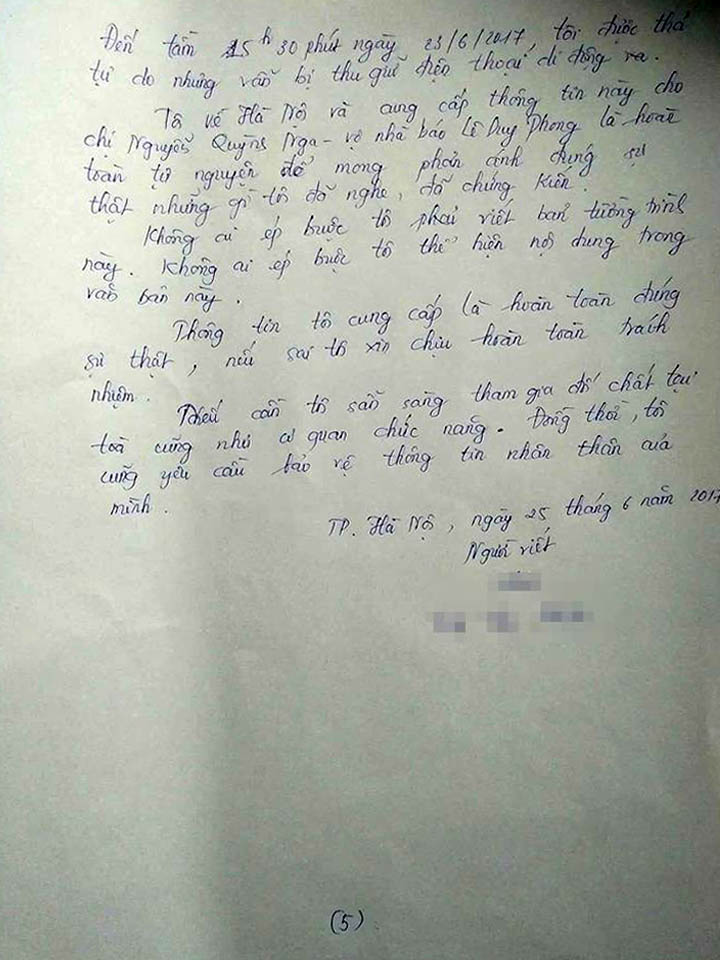 Đến tầm 15h 30 phút ngày 23/6/2017, tôi được thả
tự do nhưng vẫn bị thu giữ điện thoại di động ra.
Tôi về Hà Nội và cung cấp thông tin này cho
chị Nguyễn Quỳnh Nga - vợ nhà báo Lê Duy Phong là hoàn
toàn tự nguyện để mong phản ánh đúng sự
thật những gì tôi đã nghe, đã chứng kiến.
Không ai ép buộc tôi phải viết bản tường trình
này. Không ai ép buộc tôi thể hiện nội dung trong
văn bản này.
Thông tin tôi cung cấp là hoàn toàn đúng
sự thật, nếu sai tôi xin chịu hoàn toàn trách
nhiệm.
Nếu cần tôi sẵn sàng tham gia đối chất tại
toà cũng như cơ quan chức năng. Đồng thời, tôi
cũng yêu cầu bảo vệ thông tin nhân thân của
mình.
TP. Hà Nội, ngày 25 tháng 6 năm 2017
Người viết
(5)